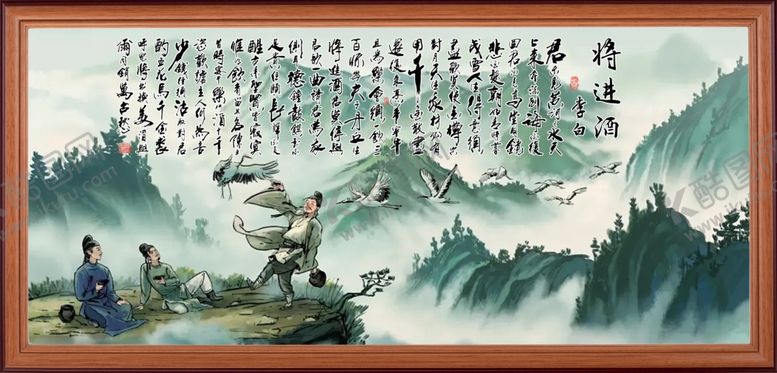 将进酒
李白
君不见黄河之水天
上来奔流到海不复
回君不见高堂明镜
悲白发朝如青丝暮
成雪人生得意须
尽欢莫使金樽空
对月天生我材必有
用千金散尽
还复来烹羊宰牛
且为乐会须一饮三
百杯岑夫子丹丘生
将进酒君莫停与
君歌一曲请君为我
侧耳听钟鼓馔玉不
足贵但愿长醉不愿
醒古来圣贤皆寂寞
惟有饮者留其名陈王
昔时宴平乐斗酒十千
恣欢谑主人何为言
少钱径须沽取对君
酌五花马千金裘
呼儿将出换美酒与
尔同销万古愁